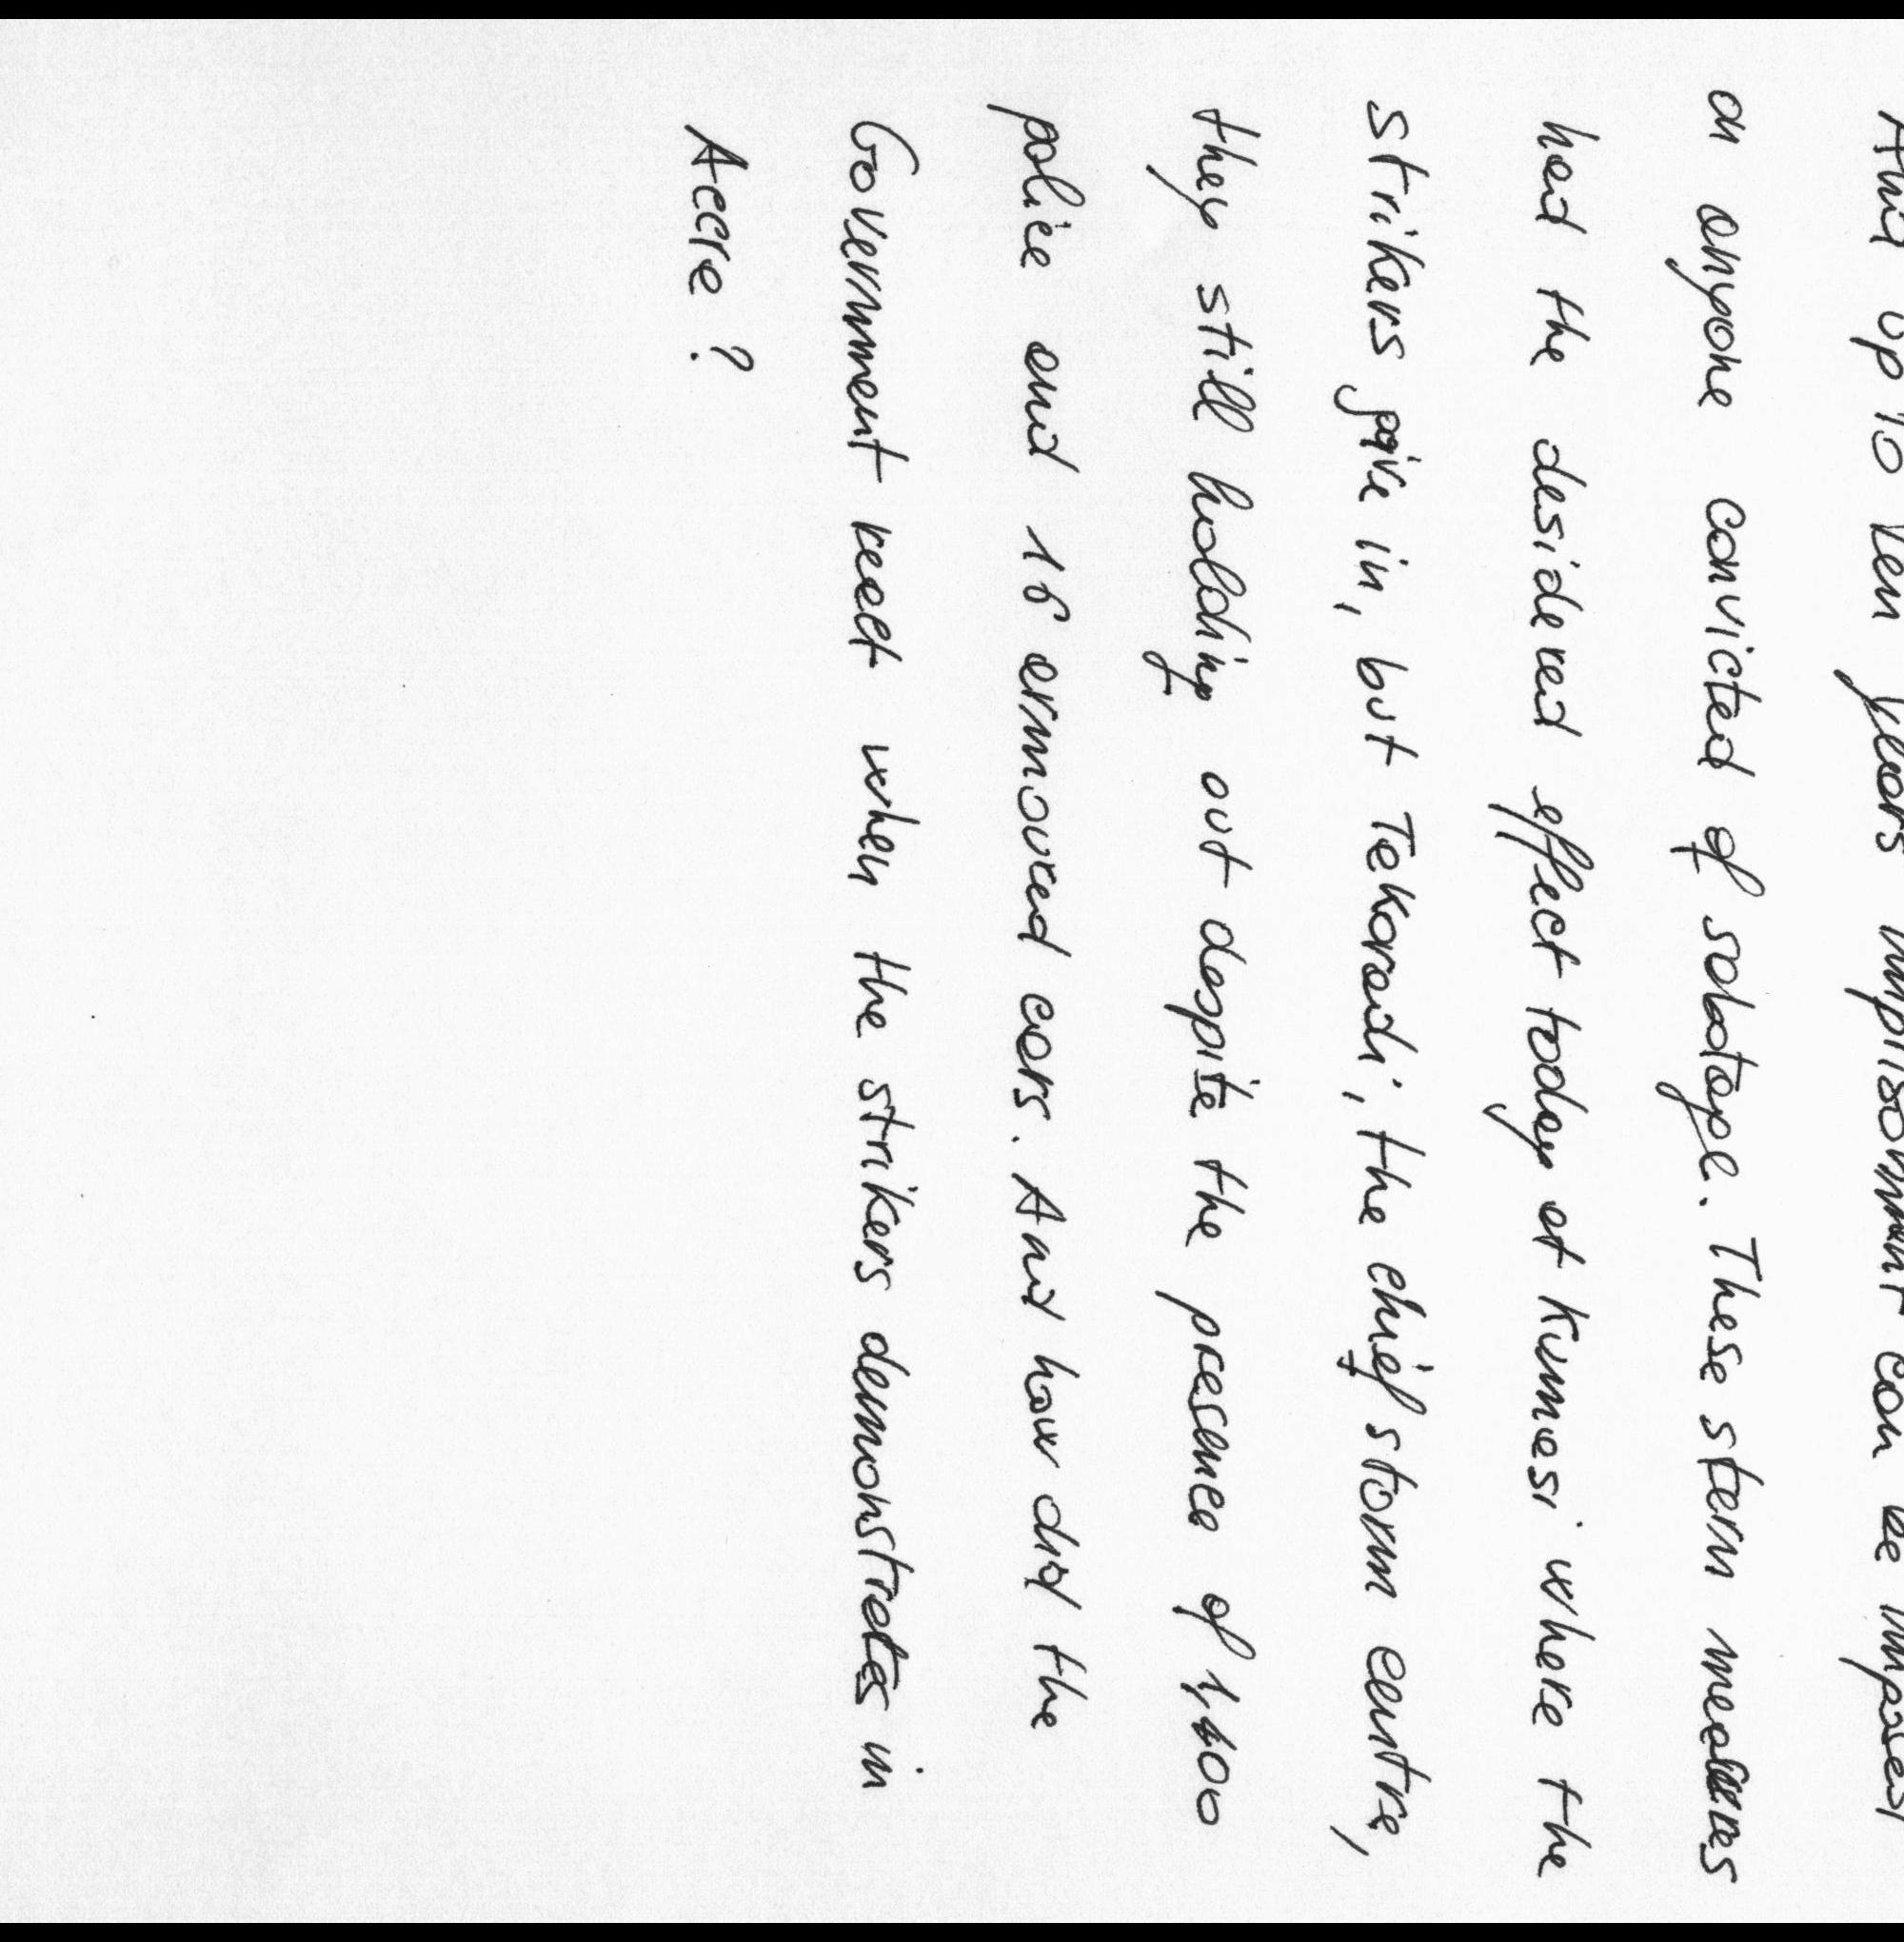 And up to ten years imprisonment can be imposed
on anyone convicted of sabotage. These stern measures
had the desidered effect today at Kumasi where the
strikers give in, but Tekoradi, the chief storm centre,
they still holding out despite the presence of 1,100
police and 16 armoured cars. And how did the
Government react when the strikers demonstrates in
Accra?